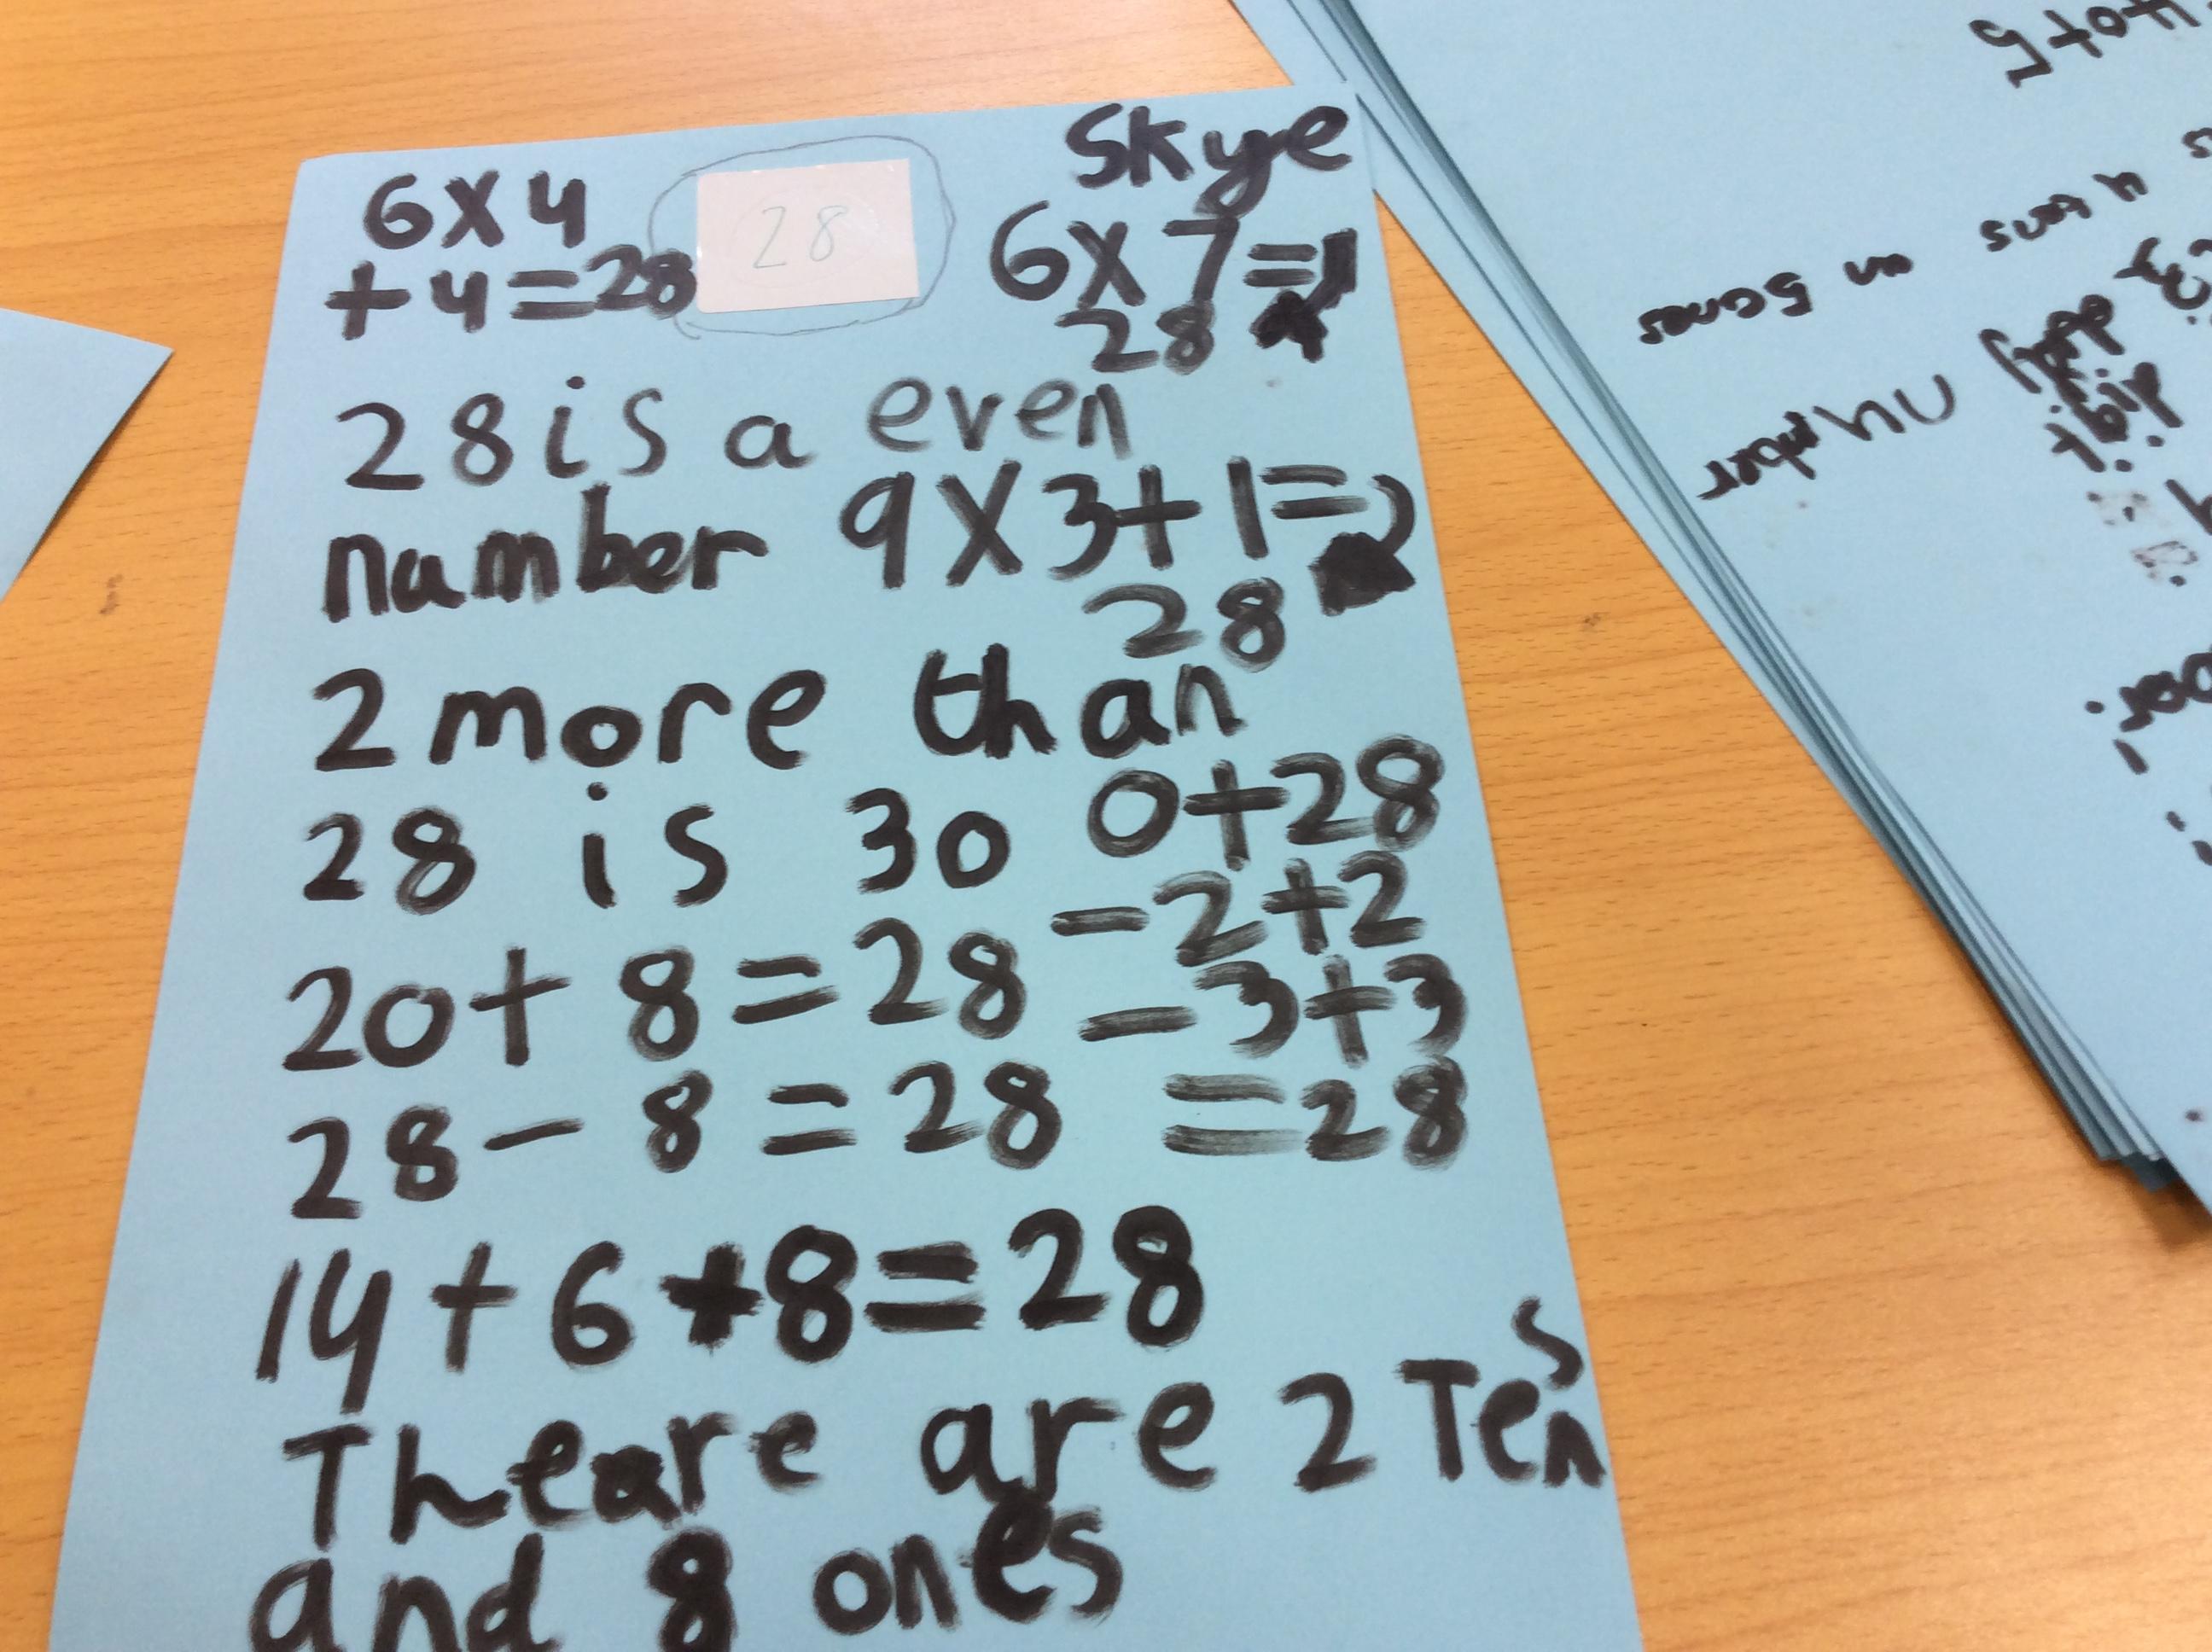 Skye
6x4
+4=28
28
6x7=
28
28 is a even
number
9x3+1=
28
2 more than
28 is 30
0+28
-2+2
-3+3
=28
20+8=28
28-8=28
14+6+8=28
Theare are 2 Tens
and 8 ones
5
4 tens
an 5 ones
number
digit